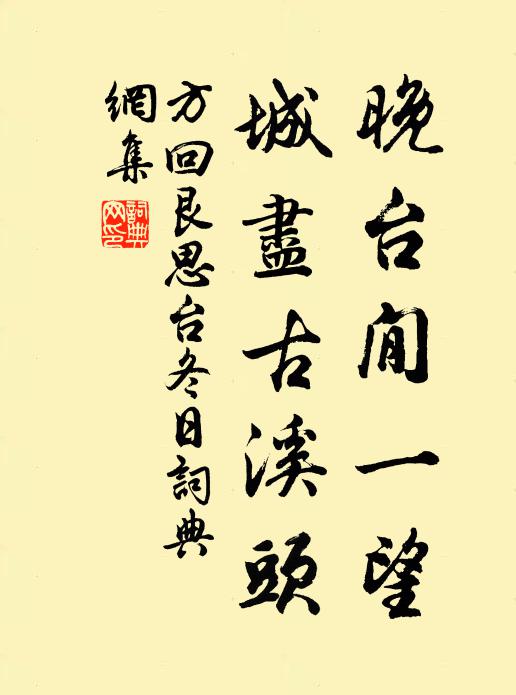 晚台閒一望
城盡古溪頭
方回艮思台冬日詞典
網集
詞典
网印